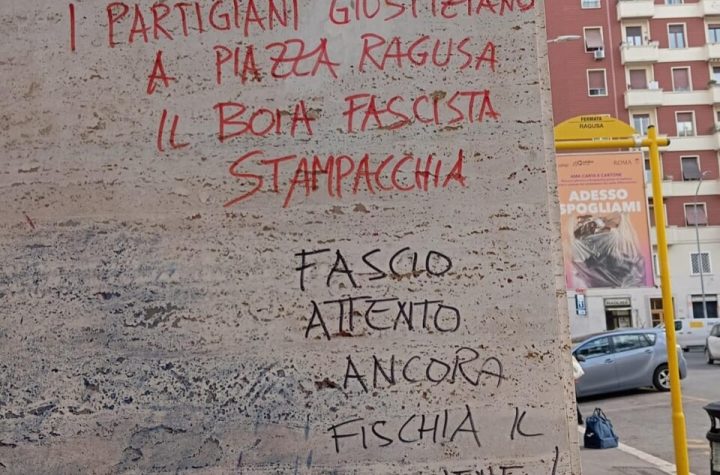 I PARTIGIANI GIUSTIZIANO
A PIAZZA RAGUSA
IL BOIA FASCISTA
STAMPACCHIA
FASCIO
ATTENTO
ANCORA
FISCHIA IL
FERMATA
RAGUSA
ROMA
AMA CARTA E CARTONE
ADESSO
SPOGLIAMI